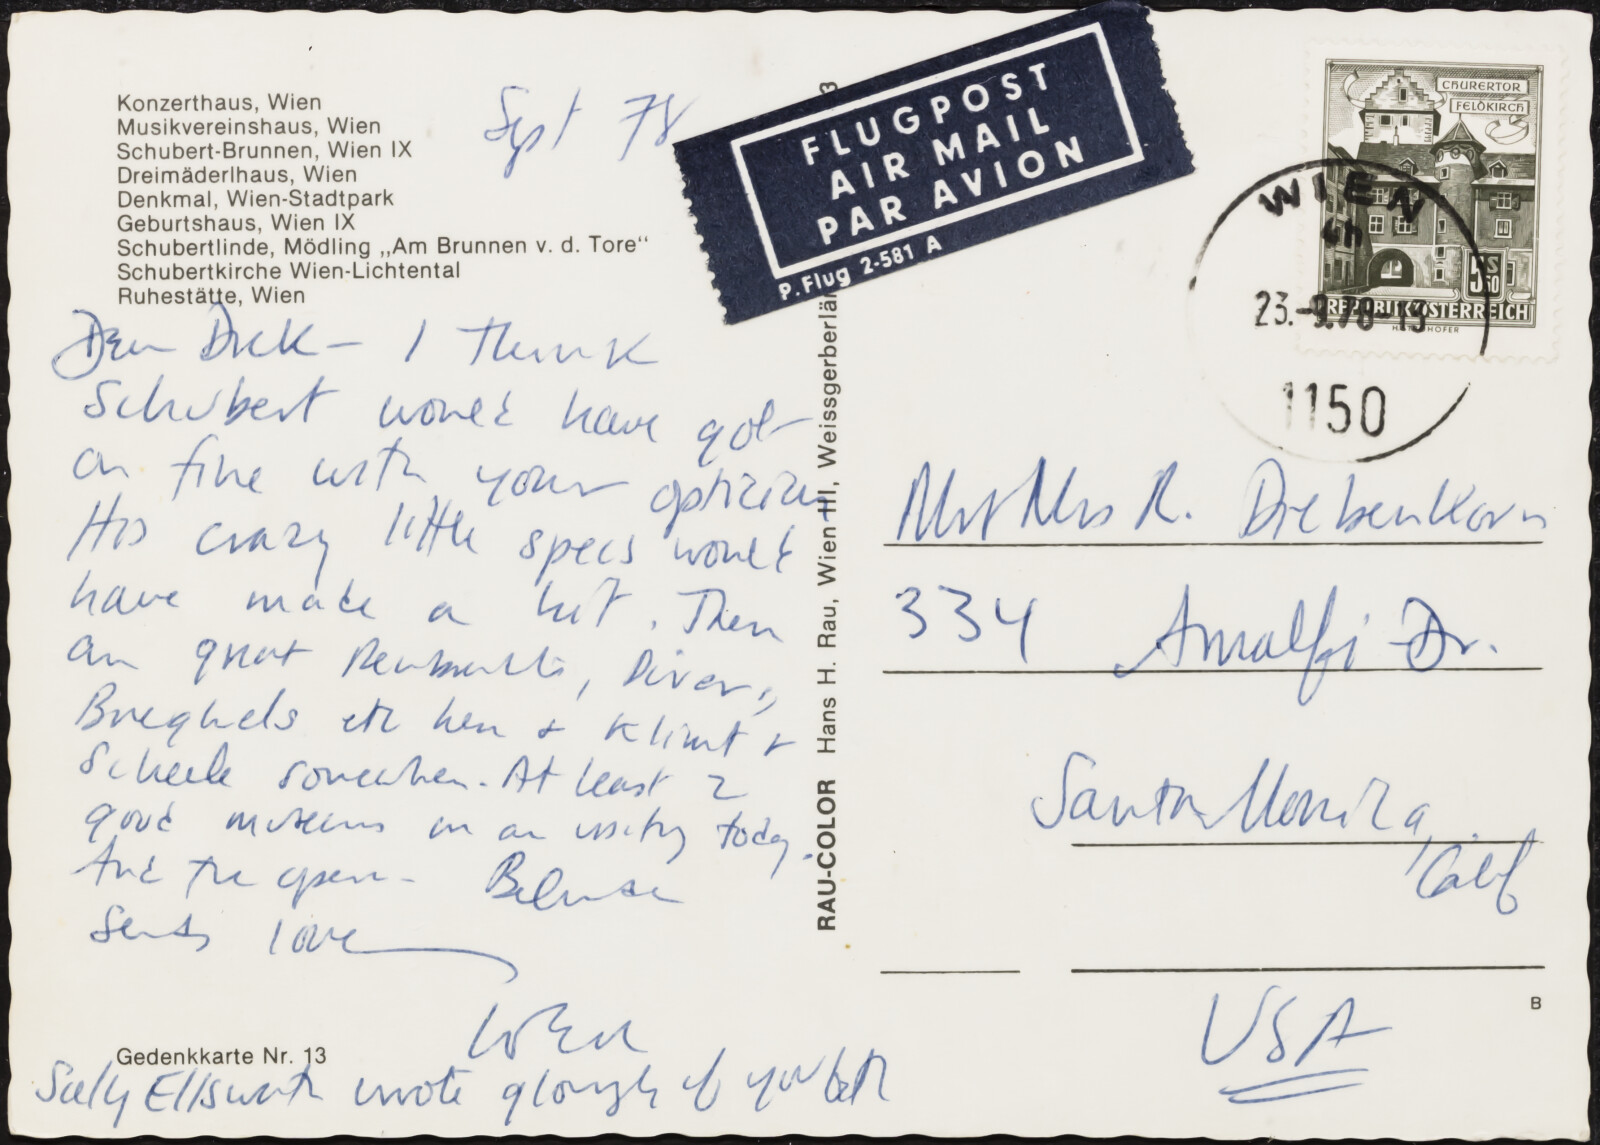 Konzerthaus, Wien
Musikvereinshaus, Wien
Schubert-Brunnen, Wien IX
Dreimäderlhaus, Wien
Denkmal, Wien-Stadtpark
Geburtshaus, Wien IX
Schubertlinde, Mödling „Am Brunnen v. d. Tore“
Schubertkirche Wien-Lichtental
Ruhestätte, Wien
Sept 78
Dear Dick – I think
Schubert would have got
on fine with your optician
His crazy little specs would
have made a hit. Then
are great Rembrandts, Dürers,
Breghels etc here & Klimt &
Schiele somewhere. At least 2
good museums on an visiting today.
And the opera – Belinda
sends love
Sally Ellsworth wrote glowingly of you both
Gedenkkarte Nr. 13
RAU-COLOR Hans H. Rau, Wien III, Weissgerberlän
3
FLUGPOST
AIR MAIL
PAR AVION
P. Flug 2-581 A
CHURERTOR
FELDKIRCH
S
3.50
REPUBLIK ÖSTERREICH
WIEN
23.-9.78-13
1150
Mr & Mrs R. Diebenkorn
334 Amalfi Dr.
Santa Monica,
Calif
USA
B